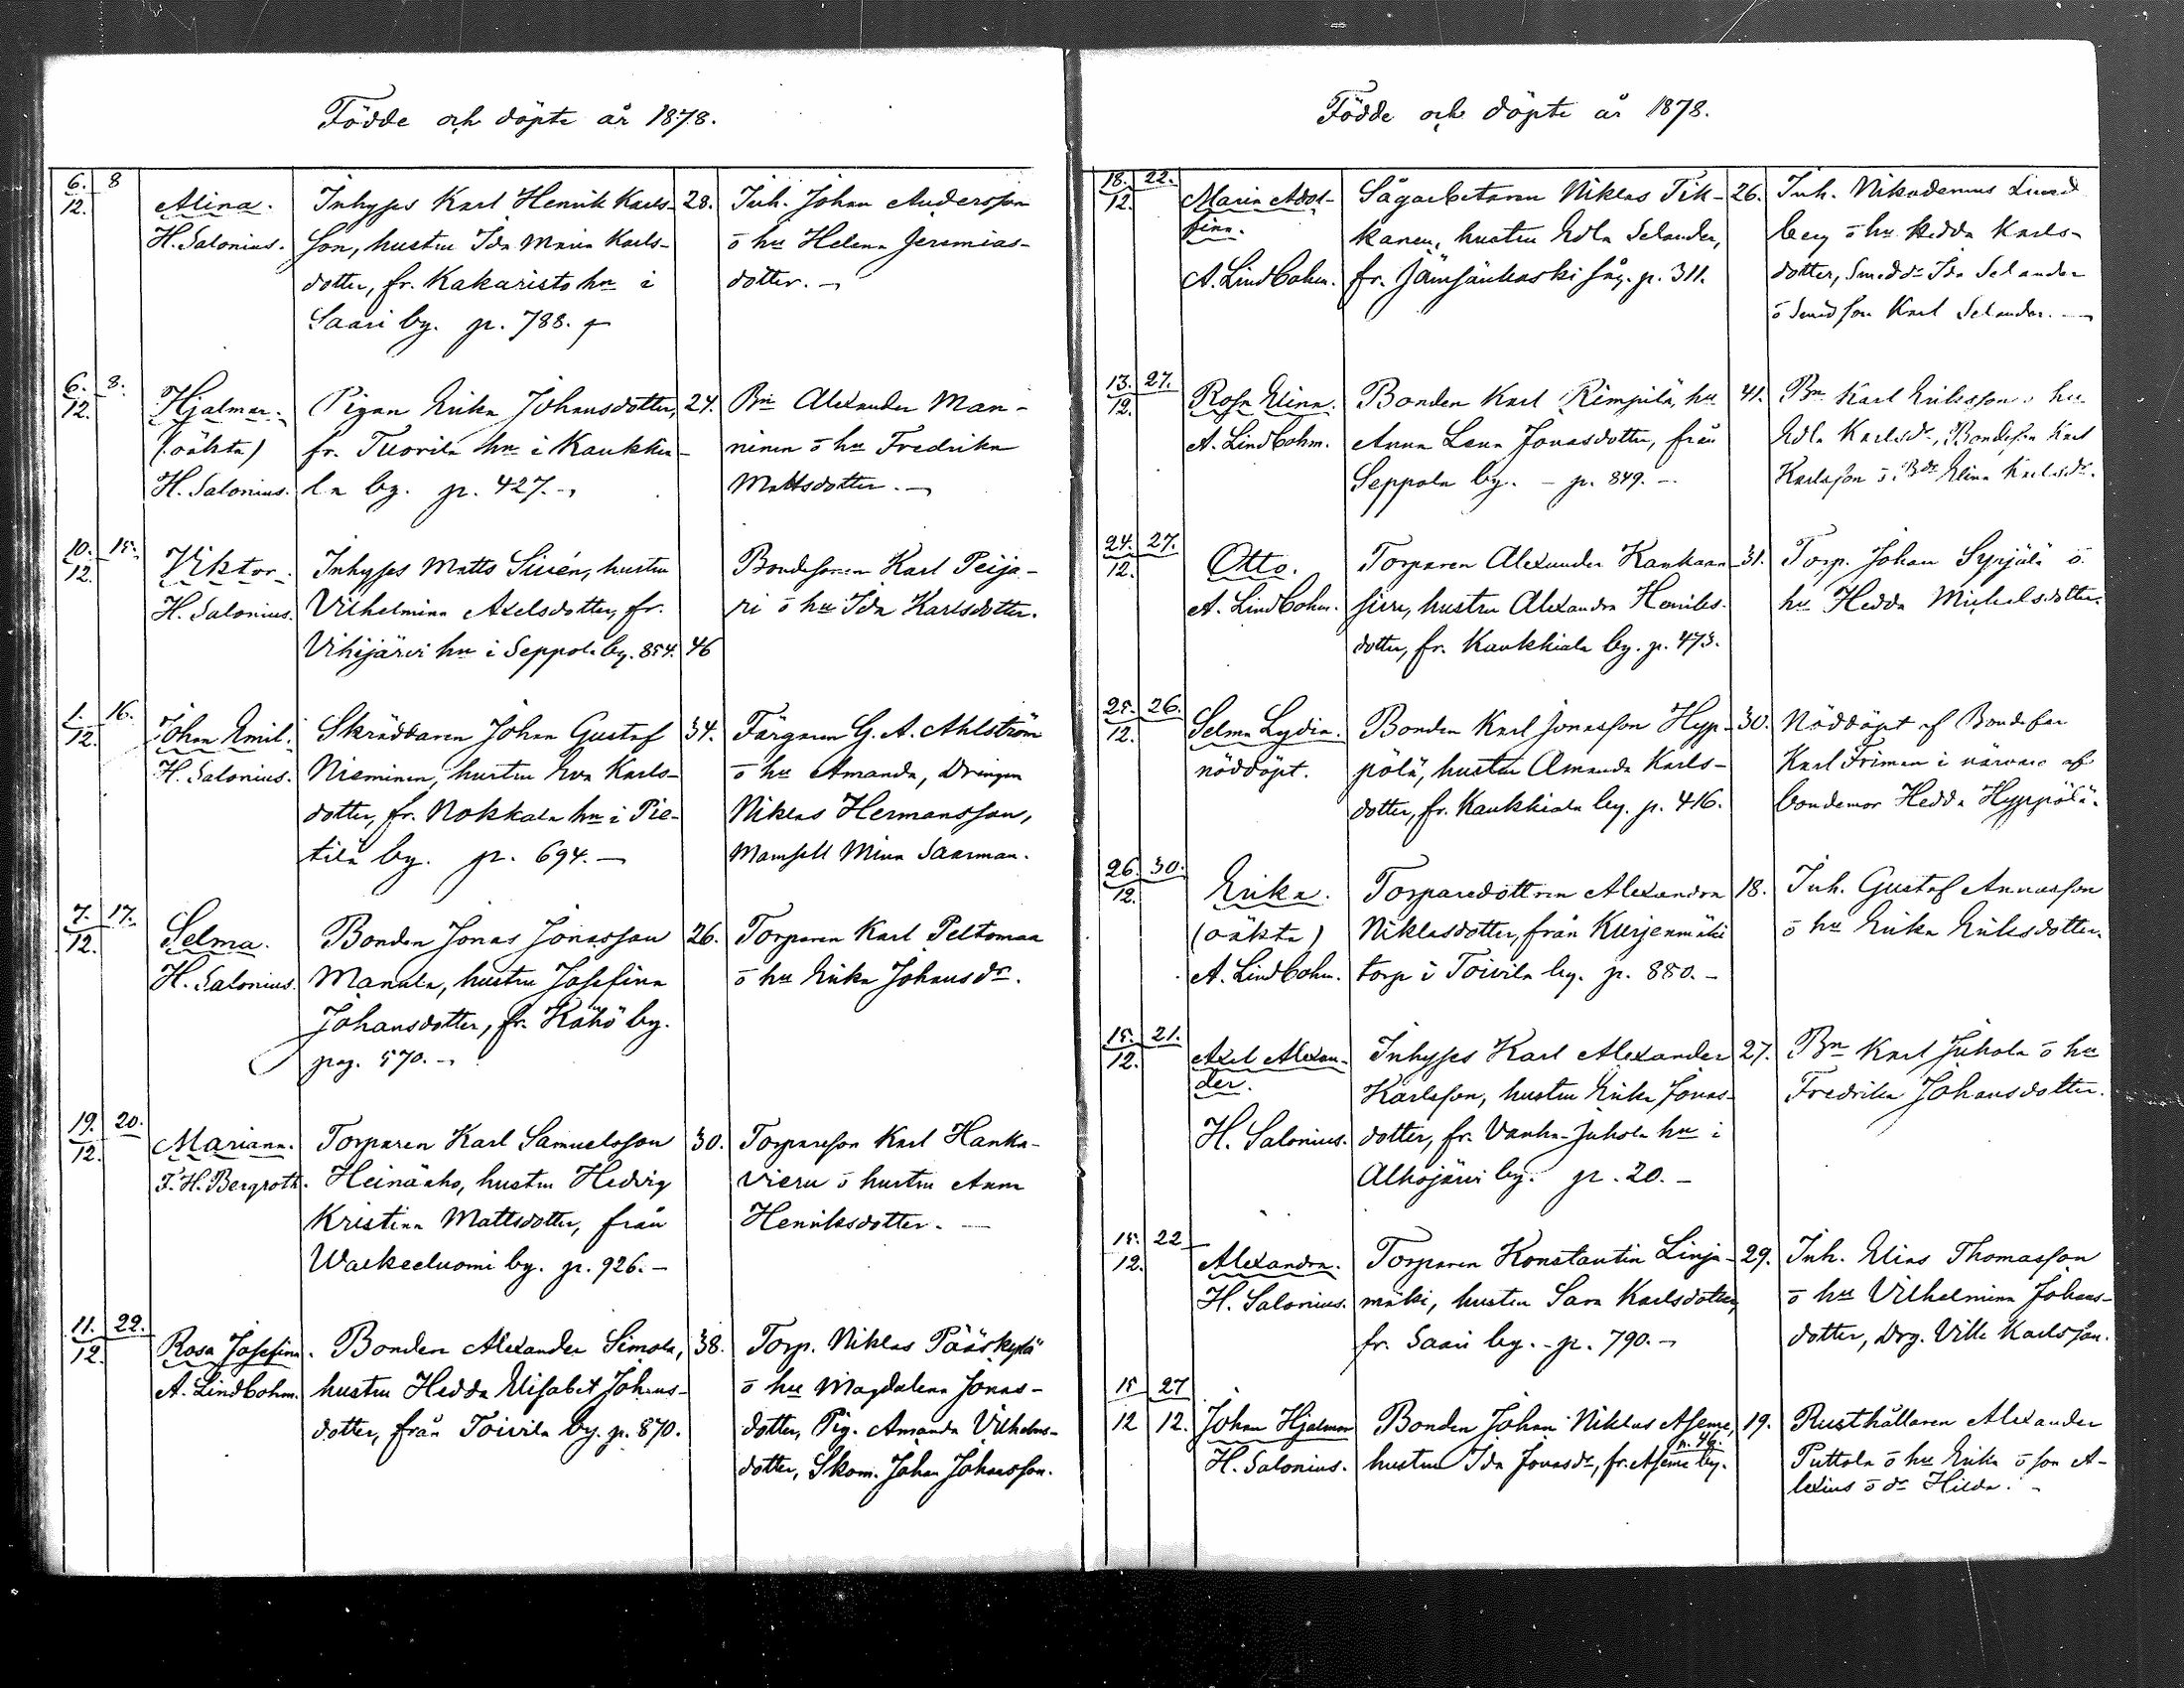 Födde och döpte år 1878.
6. 8
12.
Alina.
H. Salonius.
Inhyses Karl Henrik Karls-
son, hustru Ida Maria Karls-
dotter, fr. Kakaristo hn i
Saari by. p. 788.
28.
Inh. Johan Andersson
o hu Helena Jeremias-
dotter.
6. 8.
12.
Hjalmar.
(oäkta)
H. Salonius.
Pigan Erika Johansdotter,
fr. Tuorila hn i Kaukkia-
la by. p. 427.
24.
Bn Alexander Man-
ninen o hu Fredrika
Mattsdotter.
10. 15.
12.
Viktor.
H. Salonius.
Inhyses Matts Sirén, hustru
Vilhelmina Axelsdotter, fr.
Vihijärvi hn i Seppola by. 854.
46
Bondesonen Karl Peija-
ri o hu Ida Karlsdotter.
1. 16.
12.
Johan Emil.
H. Salonius.
Skräddaren Johan Gustaf
Nieminen, hustru Eva Karls-
dotter, fr. Nokkala hn i Pie-
tilä by. p. 694.
34.
Färgaren G. A. Ahlström
o hu Amanda, Drängen
Niklas Hermansson,
Mamsell Mina Saarman.
7. 17.
12.
Selma.
H. Salonius.
Bonden Jonas Jonasson
Manala, hustru Josefina
Johansdotter, fr. Kähö by.
pag. 570.
26.
Torparen Karl Peltomaa
o hu Erika Johansdr.
19. 20.
12.
Mariana.
F. H. Bergroth.
Torparen Karl Samuelsson
Heinäaho, hustru Hedvig
Kristina Mattsdotter, från
Waskeeluomi by. p. 926.
30.
Torpareson Karl Hanka-
vieru o hustru Anna
Henriksdotter.
11. 22.
12.
Rosa Josefina.
A. Lindbohm.
Bonden Alexander Simola,
hustru Hedda Elisabet Johans-
dotter, från Toivila by. p. 870.
38.
Torp. Niklas Pääskylä
o hu Magdalena Jonas-
dotter, Pig. Amanda Vilhelms-
dotter, Skom. Johan Johansson.
Födde och döpte år 1878.
18. 22.
12.
Maria Adol-
fina.
A. Lindbohm.
Sågarbetaren Niklas Tik-
kanen, hustru Edla Selander,
fr. Jämsänkoski såg. p. 311.
26.
Inh. Nikodemus Lind
berg o hu Hedda Karls-
dotter, Smeddr Ida Selander
o Smedson Karl Selander.
13. 27.
12.
Rosa Elina.
A. Lindbohm.
Bonden Karl Rimpilä, hu
Anna Lena Jonasdotter, från
Seppola by. - p. 849. -
41.
Bn Karl Eriksson o hu
Edla Karlsdr, Bondeson Karl
Karlsson o Bdr Elina Karlsdr.
24. 27.
12.
Otto.
A. Lindbohm.
Torparen Alexander Kankaan-
siuru, hustru Alexandra Henriks-
dotter, fr. Kaukkiala by. p. 473.
31.
Torp. Johan Syrjälä o
hu Hedda Michelsdotter.
25. 26.
12.
Selma Lydia.
nöddöpt.
Bonden Karl Jonasson Hyp-
pölä, hustru Amanda Karls-
dotter, fr. Kaukkiala by. p. 416.
30.
Nöddöpt af Bondeson
Karl Friman i närvaro af
bondemor Hedda Hyppölä.
26. 30.
12.
Erika.
(oäkta)
A. Lindbohm.
Torparedottren Alexandra
Niklasdotter, från Kurjenmäki
torp i Toivila by. p. 880. -
18.
Inh. Gustaf Annasson
o hu Erika Eriksdotter.
15. 21.
12.
Axel Alexan-
der.
H. Salonius.
Inhyses Karl Alexander
Karlsson, hustru Erika Jonas-
dotter, fr. Vanha-Juhola hn i
Alhojärvi by. p. 20. -
27.
Bn Karl Juhola o hu
Fredrika Johansdotter.
15. 22
12.
Alexandra.
H. Salonius.
Torparen Konstantin Linja-
mäki, hustru Sara Karlsdotter,
fr. Saari by. - p. 790.
29.
Inh. Elias Thomasson
o hu Vilhelmina Johans-
dotter, Drg. Ville Karlsson.
15 27
12 12.
Johan Hjalmar
H. Salonius.
Bonden Johan Niklas Aseme,
p. 46.
hustru Ida Jonasdr, fr. Aseme by.
19.
Rusthållaren Alexander
Puttola o hu Erika o son A-
lexius o dr Hilda.